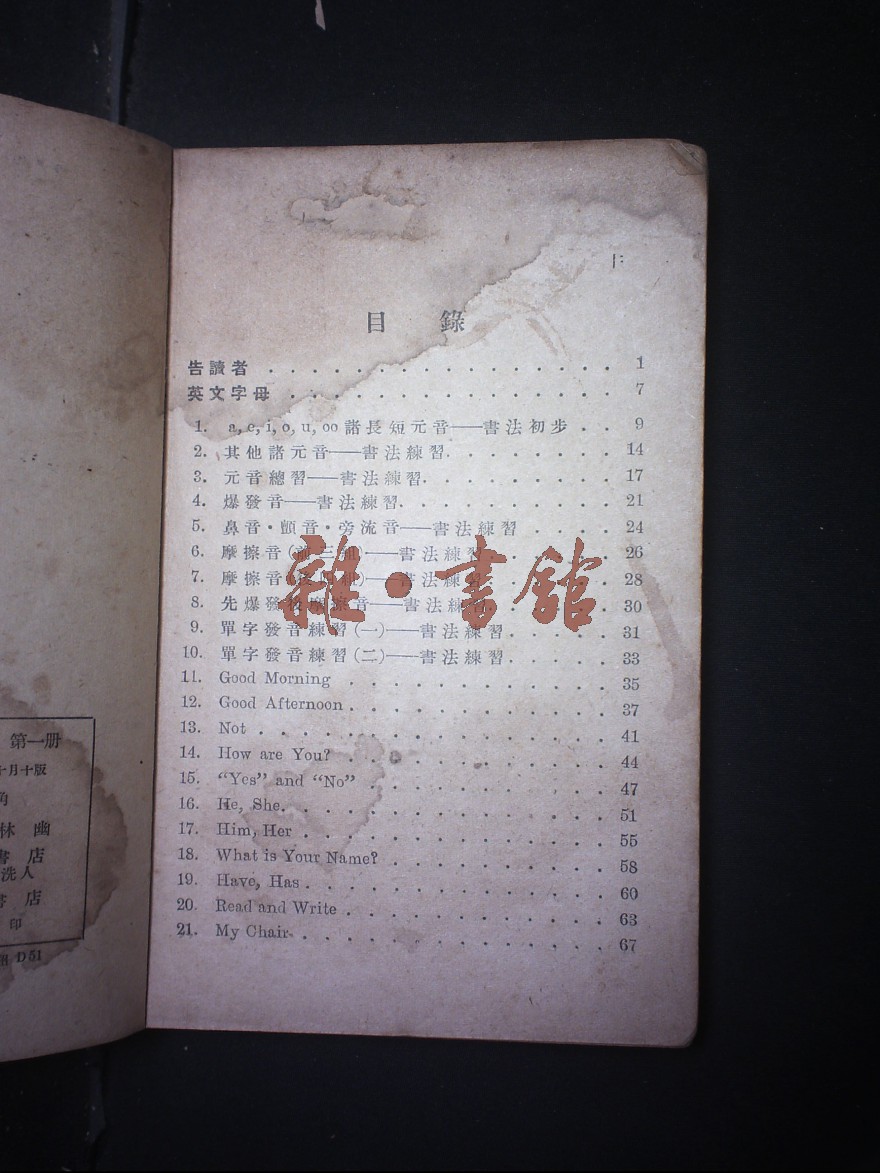 第一册
十月十版
角
林幽
書店
洗人
書店
印
D51
目錄
告讀者 . . . . . . . . . . . . . . . . 1
英文字母 . . . . . . . . . . . . . . . 7
1. a, e, i, o, u, oo 諸長短元音——書法初步 . . 9
2. 其他諸元音——書法練習. . . . . . . . 14
3. 元音總習——書法練習. . . . . . . . . 17
4. 爆發音——書法練習. . . . . . . . . . 21
5. 鼻音·顫音·旁流音——書法練習 . . . . 24
6. 摩擦音(前三組)——書法練習. . . . . . 26
7. 摩擦音(後四組)——書法練習. . . . . . 28
8. 先爆發後摩擦音——書法練習. . . . . . 30
9. 單字發音練習(一)——書法練習. . . . . 31
10. 單字發音練習(二)——書法練習. . . . . 33
11. Good Morning . . . . . . . . . . 35
12. Good Afternoon . . . . . . . . . . 37
13. Not . . . . . . . . . . . . . 41
14. How are You? . . . . . . . . . . 44
15. “Yes” and “No” . . . . . . . . . 47
16. He, She. . . . . . . . . . . . 51
17. Him, Her . . . . . . . . . . . 55
18. What is Your Name? . . . . . . . . 58
19. Have, Has . . . . . . . . . . . 60
20. Read and Write . . . . . . . . . . 63
21. My Chair. . . . . . . . . . . . 67
雜·書舘